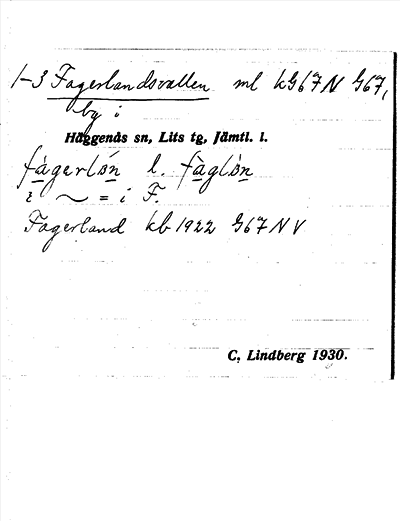 1-3 Fagerlandsvallen ml kG67N G67,
by i
Häggenås sn, Lits tg, Jämtl. l.
fàgerlón l. fàglòn
i ~ = i F.
Fagerland kb 1922 G67NV
C. Lindberg 1930.